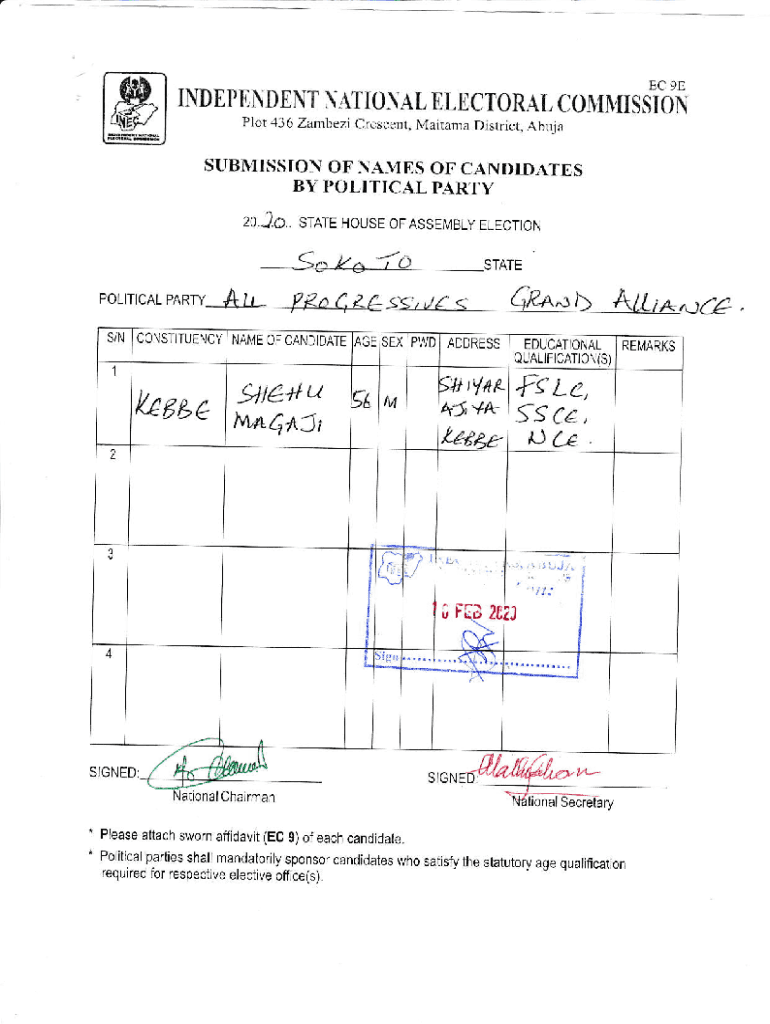 EC 9E
INDEPENDENT NATIONAL ELECTORAL COMMISSION
Plot 436 Zambezi Crescent, Maitama District, Abuja
INEC
INDEPENDENT NATIONAL
ELECTORAL COMMISSION
SUBMISSION OF NAMES OF CANDIDATES
BY POLITICAL PARTY
2020.. STATE HOUSE OF ASSEMBLY ELECTION
SOKOTO STATE
POLITICAL PARTY ALL PROGRESSIVES GRAND ALLIANCE.
S/N CONSTITUENCY NAME OF CANDIDATE AGE SEX PWD ADDRESS EDUCATIONAL QUALIFICATION(S) REMARKS
1 KEBBE SHEHU MAGAJI 56 M SHIYAR AJIYA KEBBE FSLC, SSCE, NCE.
2
3
FEB 2020
4
Sign
SIGNED:
SIGNED:
National Chairman
National Secretary
* Please attach sworn affidavit (EC 9) of each candidate.
* Political parties shall mandatorily sponsor candidates who satisfy the statutory age qualification
required for respective elective office(s).